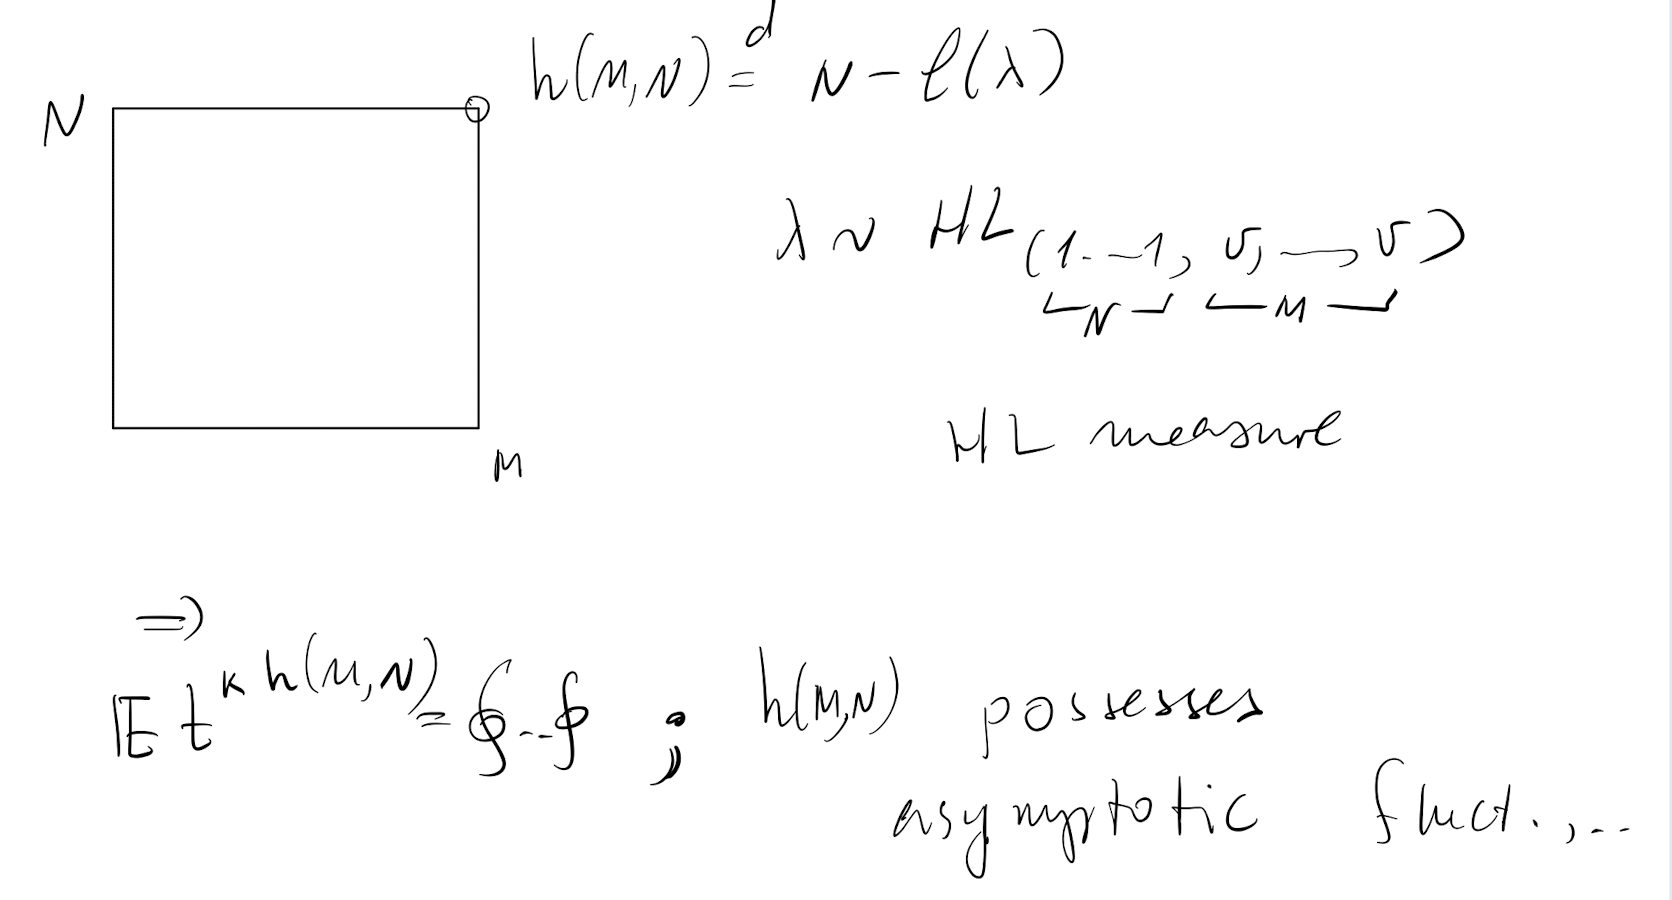 h(M,N) =ᵈ N - ℓ(λ)
N
λ ~ HL(1..1, v, — v)
N M
HL measure
M
⇒
𝔼 t^{k h(M,N)} = ∮..∮ ; h(M,N) possesses
asymptotic fluct.,..